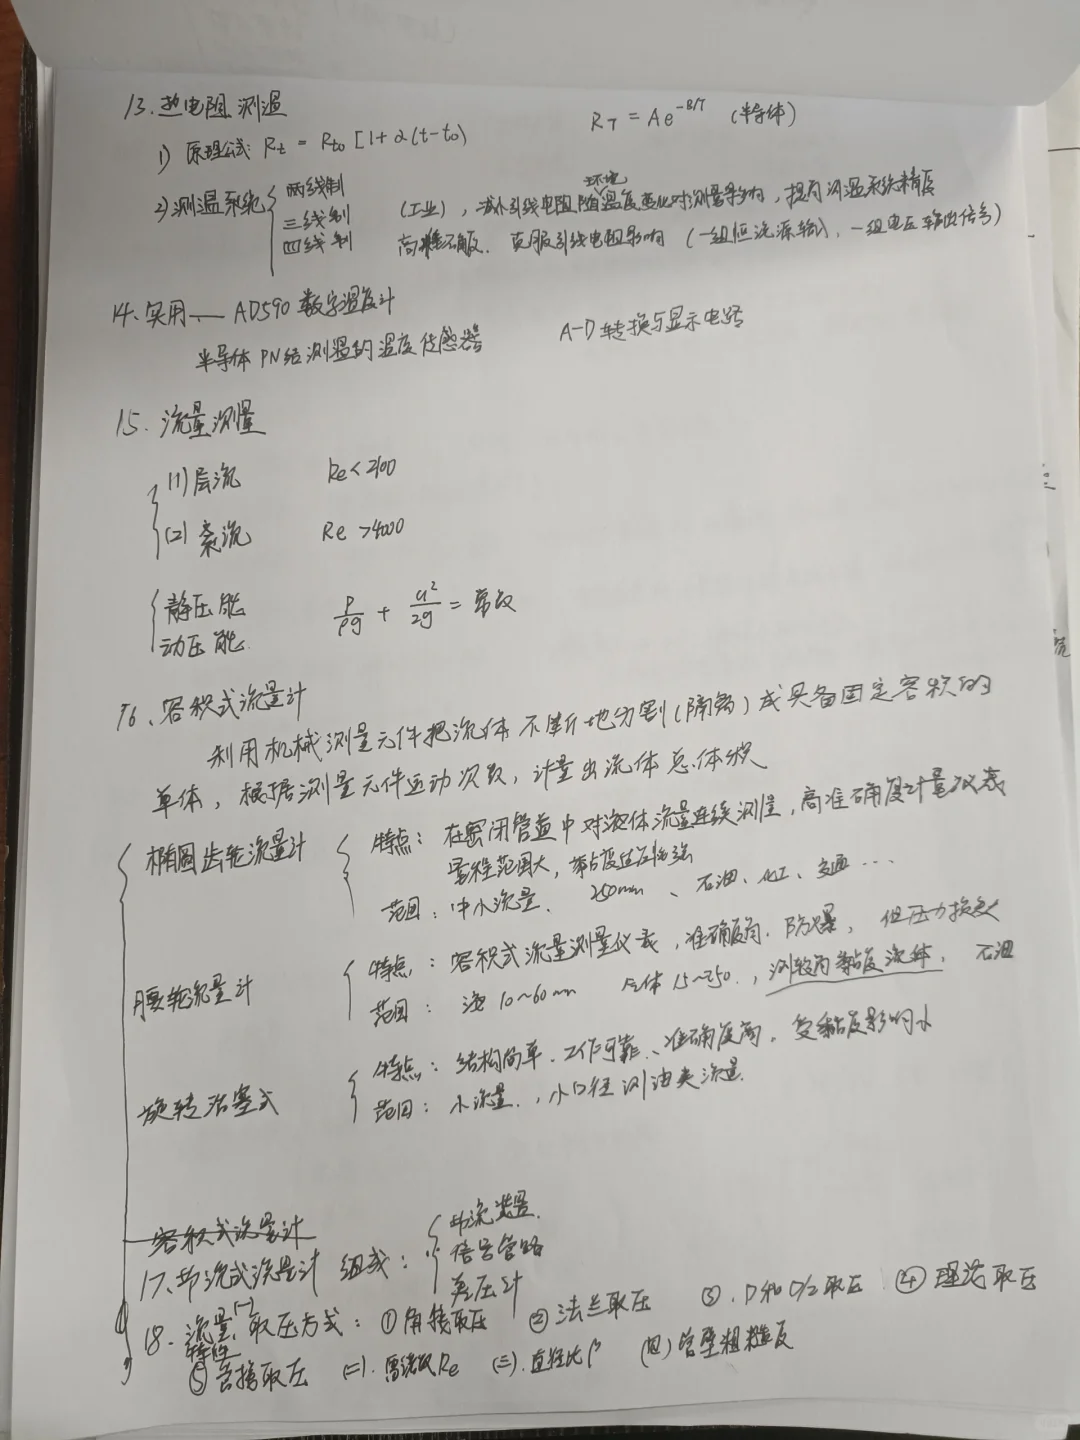 13. 热电阻测温
1) 原理公式: Rt = Rt0 [1+α(t-t0)    RT = Ae^-B/T (半导体)
2) 测温系统 { 两线制
三线制 (工业), 减小引线电阻随环境温度变化对测量影响, 提高测温系统精度
四线制 高精确度. 克服引线电阻影响 (一组恒流源输入, 一组电压输出信号)
14. 实用—— AD590 数字温度计
半导体 PN结测温的温度传感器    A-D转换与显示电路
15. 流量测量
(1) 层流 Re<2100
(2) 紊流 Re >4000
静压能
动压能. p/ρg + u²/2g = 常数
16、容积式流量计
利用机械测量元件把流体不断地分割(隔离)成具备固定容积的
单体, 根据测量元件运动次数, 计量出流体总体积
椭圆齿轮流量计 { 特点: 在密闭管道中对液体流量连续测量, 高准确度计量仪表
量程范围大, 黏度适应性强
范围: 中小流量. 250mm 、石油、化工、交通 ...
腰轮流量计 { 特点: 容积式流量测量仪表, 准确度高. 防爆, 但压力损失
范围: 液 10~60mm 气体 15~250., 测较高黏度流体. 石油
旋转活塞式 { 特点: 结构简单. 工作可靠、准确度高. 受黏度影响小
范围: 小流量., 小口径测油类流量.
容积式流量计
17、节流式流量计 组成: { 节流装置.
信号管路
差压计
18. 流量特性 (一) 取压方式: ① 角接取压 ② 法兰取压 ③. D和D/2取压 ④ 理论取压
⑤ 管接取压 (二). 雷诺数Re (三). 直径比β (四) 管壁粗糙度